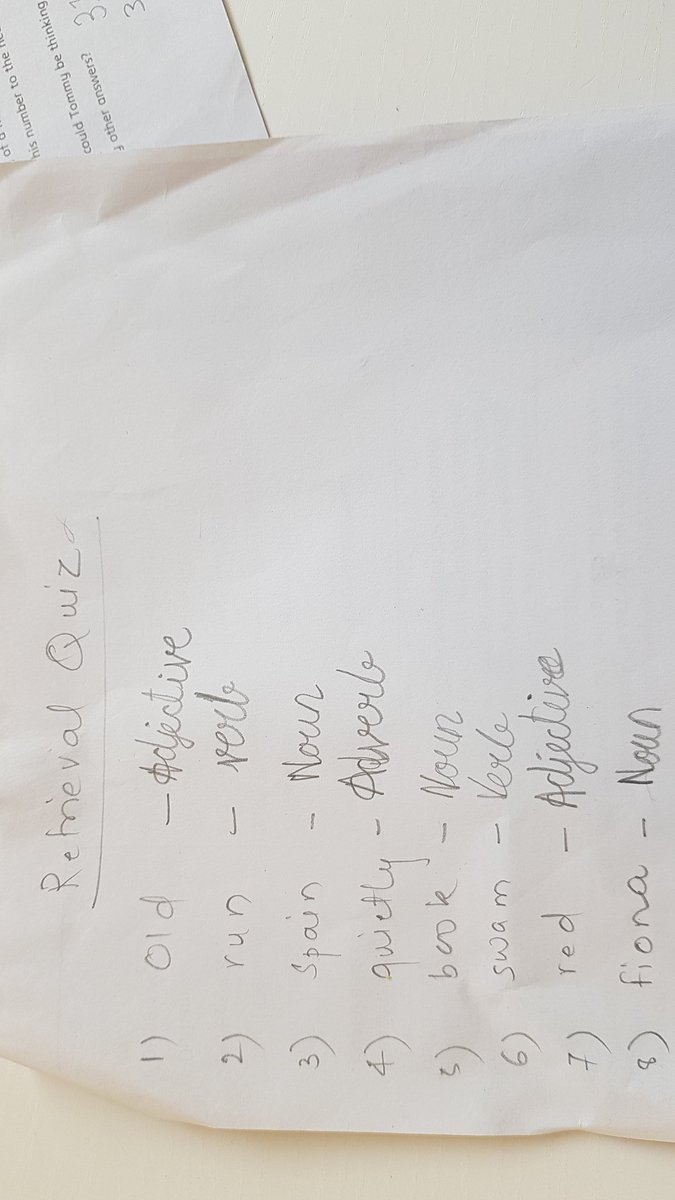 of a n
his number to the nea
could Tommy be thinking
y other answers? 31
3
Retrieval Quiz
1) Old - Adjective
2) run - verb
3) Spain - Noun
4) quietly - Adverb
5) book - Noun
6) swam - Verb
7) red - Adjective
8) fiona - Noun